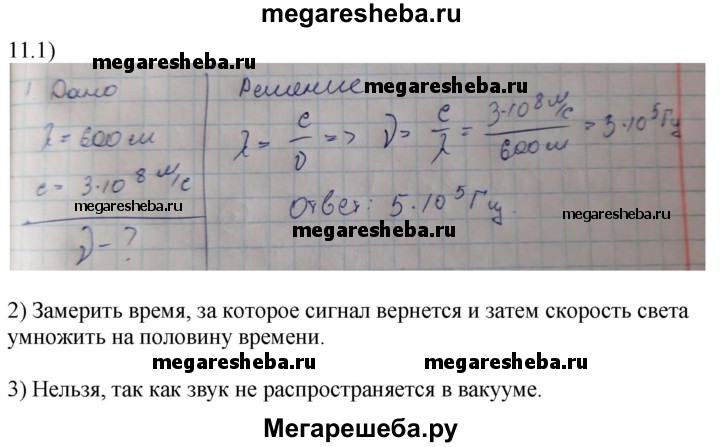 megaresheba.ru
11.1)
Дано
Решение megaresheba.ru
megaresheba.ru
λ = 600 м
λ = c/ν => ν = c/λ = 3·10⁸ м/с / 600 м = 3·10⁵ Гц
c = 3·10⁸ м/с
megaresheba.ru
Ответ: 5·10⁵ Гц.
megaresheba.ru
megaresheba.ru
ν – ?
2) Замерить время, за которое сигнал вернется и затем скорость света
умножить на половину времени.
megaresheba.ru megaresheba.ru
3) Нельзя, так как звук не распространяется в вакууме.
Мегарешеба.ру